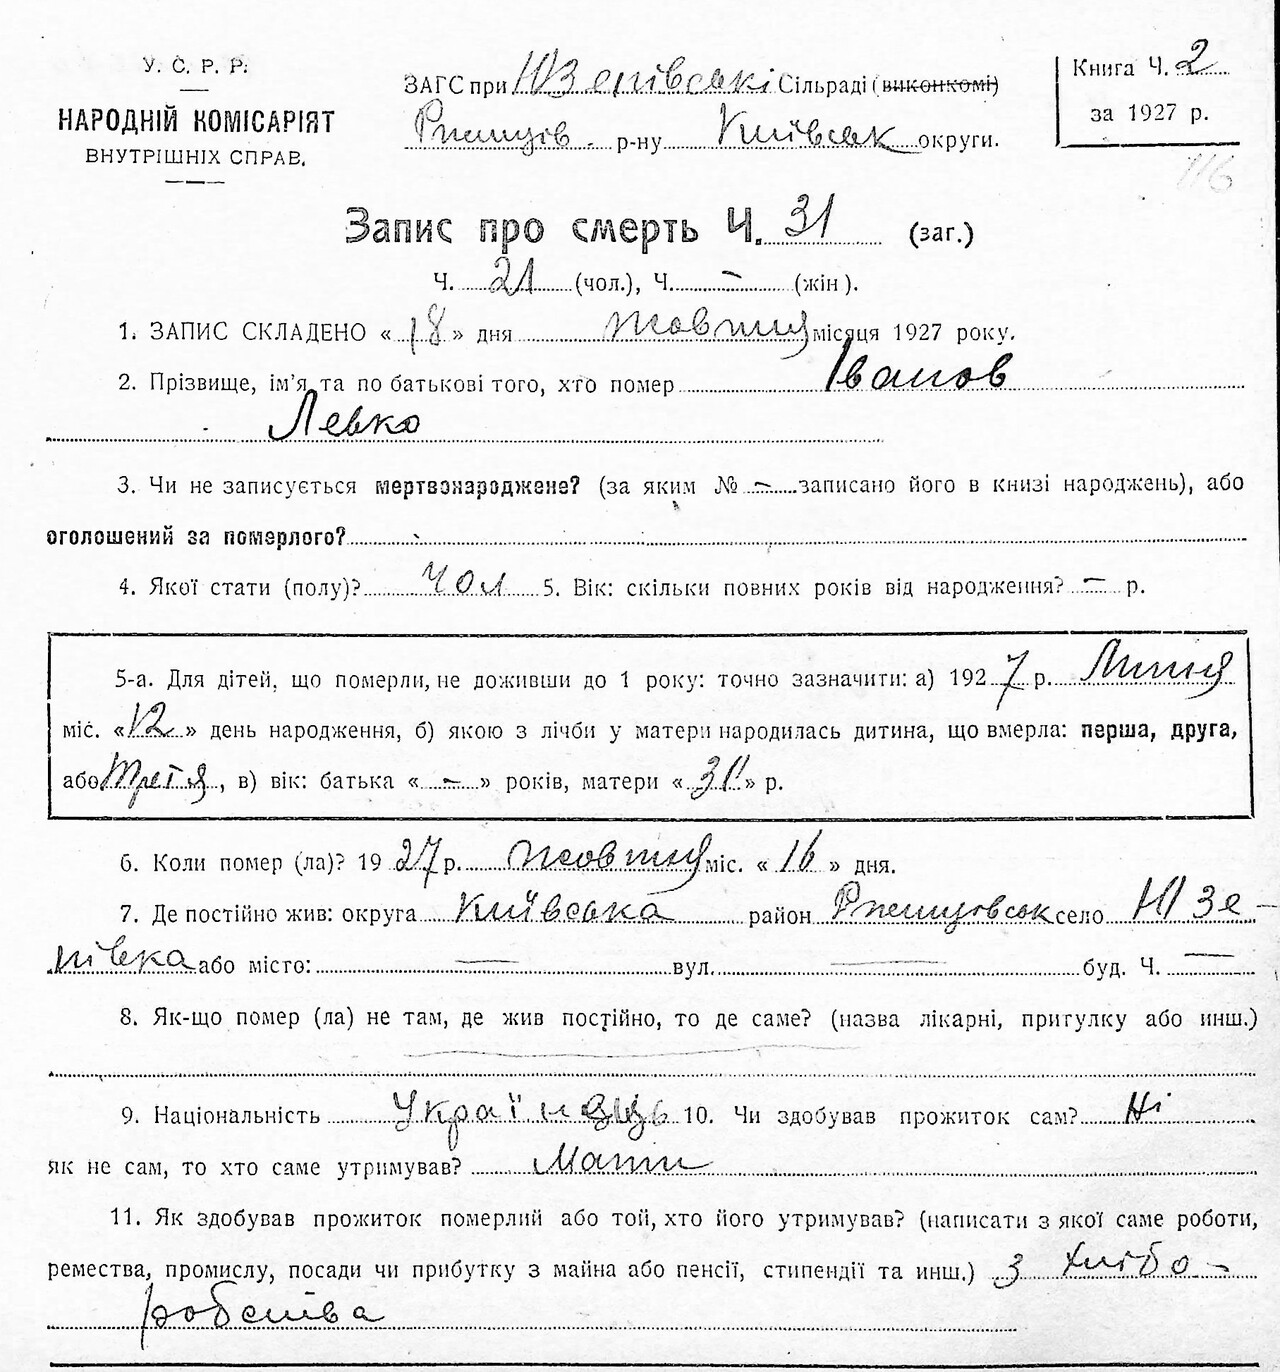 У. С. Р. Р.
НАРОДНІЙ КОМІСАРІЯТ
ВНУТРІШНІХ СПРАВ.
ЗАГС при Юзепівські Сільраді (виконкомі)
Ржищів. р-ну Київськ округи.
Книга Ч. 2
за 1927 р.
116
Запис про смерть Ч. 31 (заг.)
Ч. 21 (чол.), Ч. – (жін).
1. ЗАПИС СКЛАДЕНО «18» дня жовтня місяця 1927 року.
2. Прізвище, ім'я та по батькові того, хто помер Іванов
Левко
3. Чи не записується мертвонароджене? (за яким № – записано його в книзі народжень), або
оголошений за померлого?
4. Якої стати (полу)? Чол 5. Вік: скільки повних років від народження? – р.
5-а. Для дітей, що померли, не доживши до 1 року: точно зазначити: а) 1927 р. Липня
міс. «12» день народження, б) якою з лічби у матери народилась дитина, що вмерла: перша, друга,
або третя, в) вік: батька « – » років, матери «31» р.
6. Коли помер (ла)? 1927 р. жовтня міс. «16» дня.
7. Де постійно жив: округа Київська район Ржищовськ село Юзе-
півка або місто: — вул. — буд. Ч. —
8. Як-що помер (ла) не там, де жив постійно, то де саме? (назва лікарні, притулку або инш.)
9. Національність Українець 10. Чи здобував прожиток сам? Ні
як не сам, то хто саме утримував? Мати
11. Як здобував прожиток померлий або той, хто його утримував? (написати з якої саме роботи,
ремества, промислу, посади чи прибутку з майна або пенсії, стипендії та инш.) З хлібо-
робства